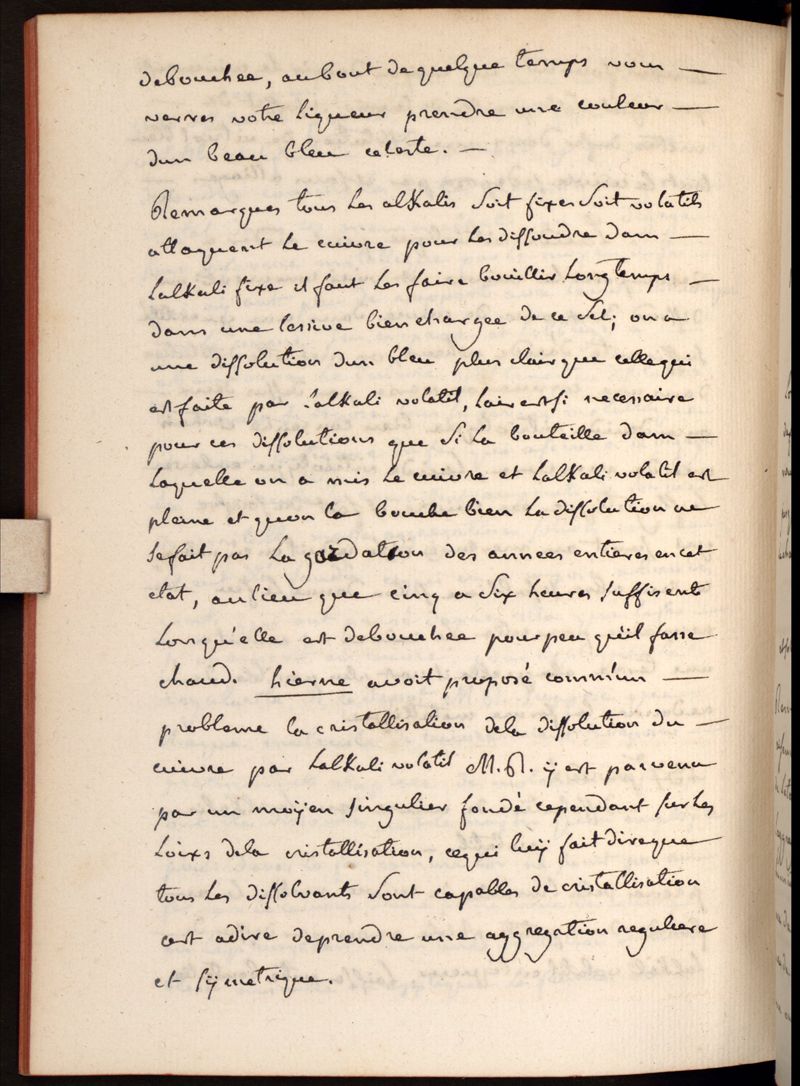 debouchee, aubout de quelque temps vous —
verres votre liqueur prendre une couleur —
dun beau bleu celeste. —
Remarques tous les alkalis soit fixes soit volatils
attaquent le cuivre pour les dissoudre dans —
lalkali fixe il faut les faire bouillir longtemps —
dans une lessive bien chargee de ce sel; on a
une dissolution dun bleu plus clair que celle qui
est faite par l'alkali volatil, lair est si necessaire
pour ces dissolutions que si la bouteille dans —
laquelle on a mis le cuivre et lalkali volatil est
pleine et quon la bouche bien la dissolution ne
se fait pas la des annees entieres en cet
etat, aulieu que cinq a six heures suffisent
lorsqu'elle est debouchee pour peu qu'il fasse
chaud. hierne avoit proposé comm'un —
probleme la cristallisation dela dissolution du —
cuivre par lalkali volatil M. R. ÿ est parvenu
par un moÿen singulier fondé cependant sur les
loixs dela cristallisation, cequi luÿ fait dire que
tous les dissolvants sont capables de cristallisation
cest adire deprendre une aggregation reguliere
et sÿmetrique.